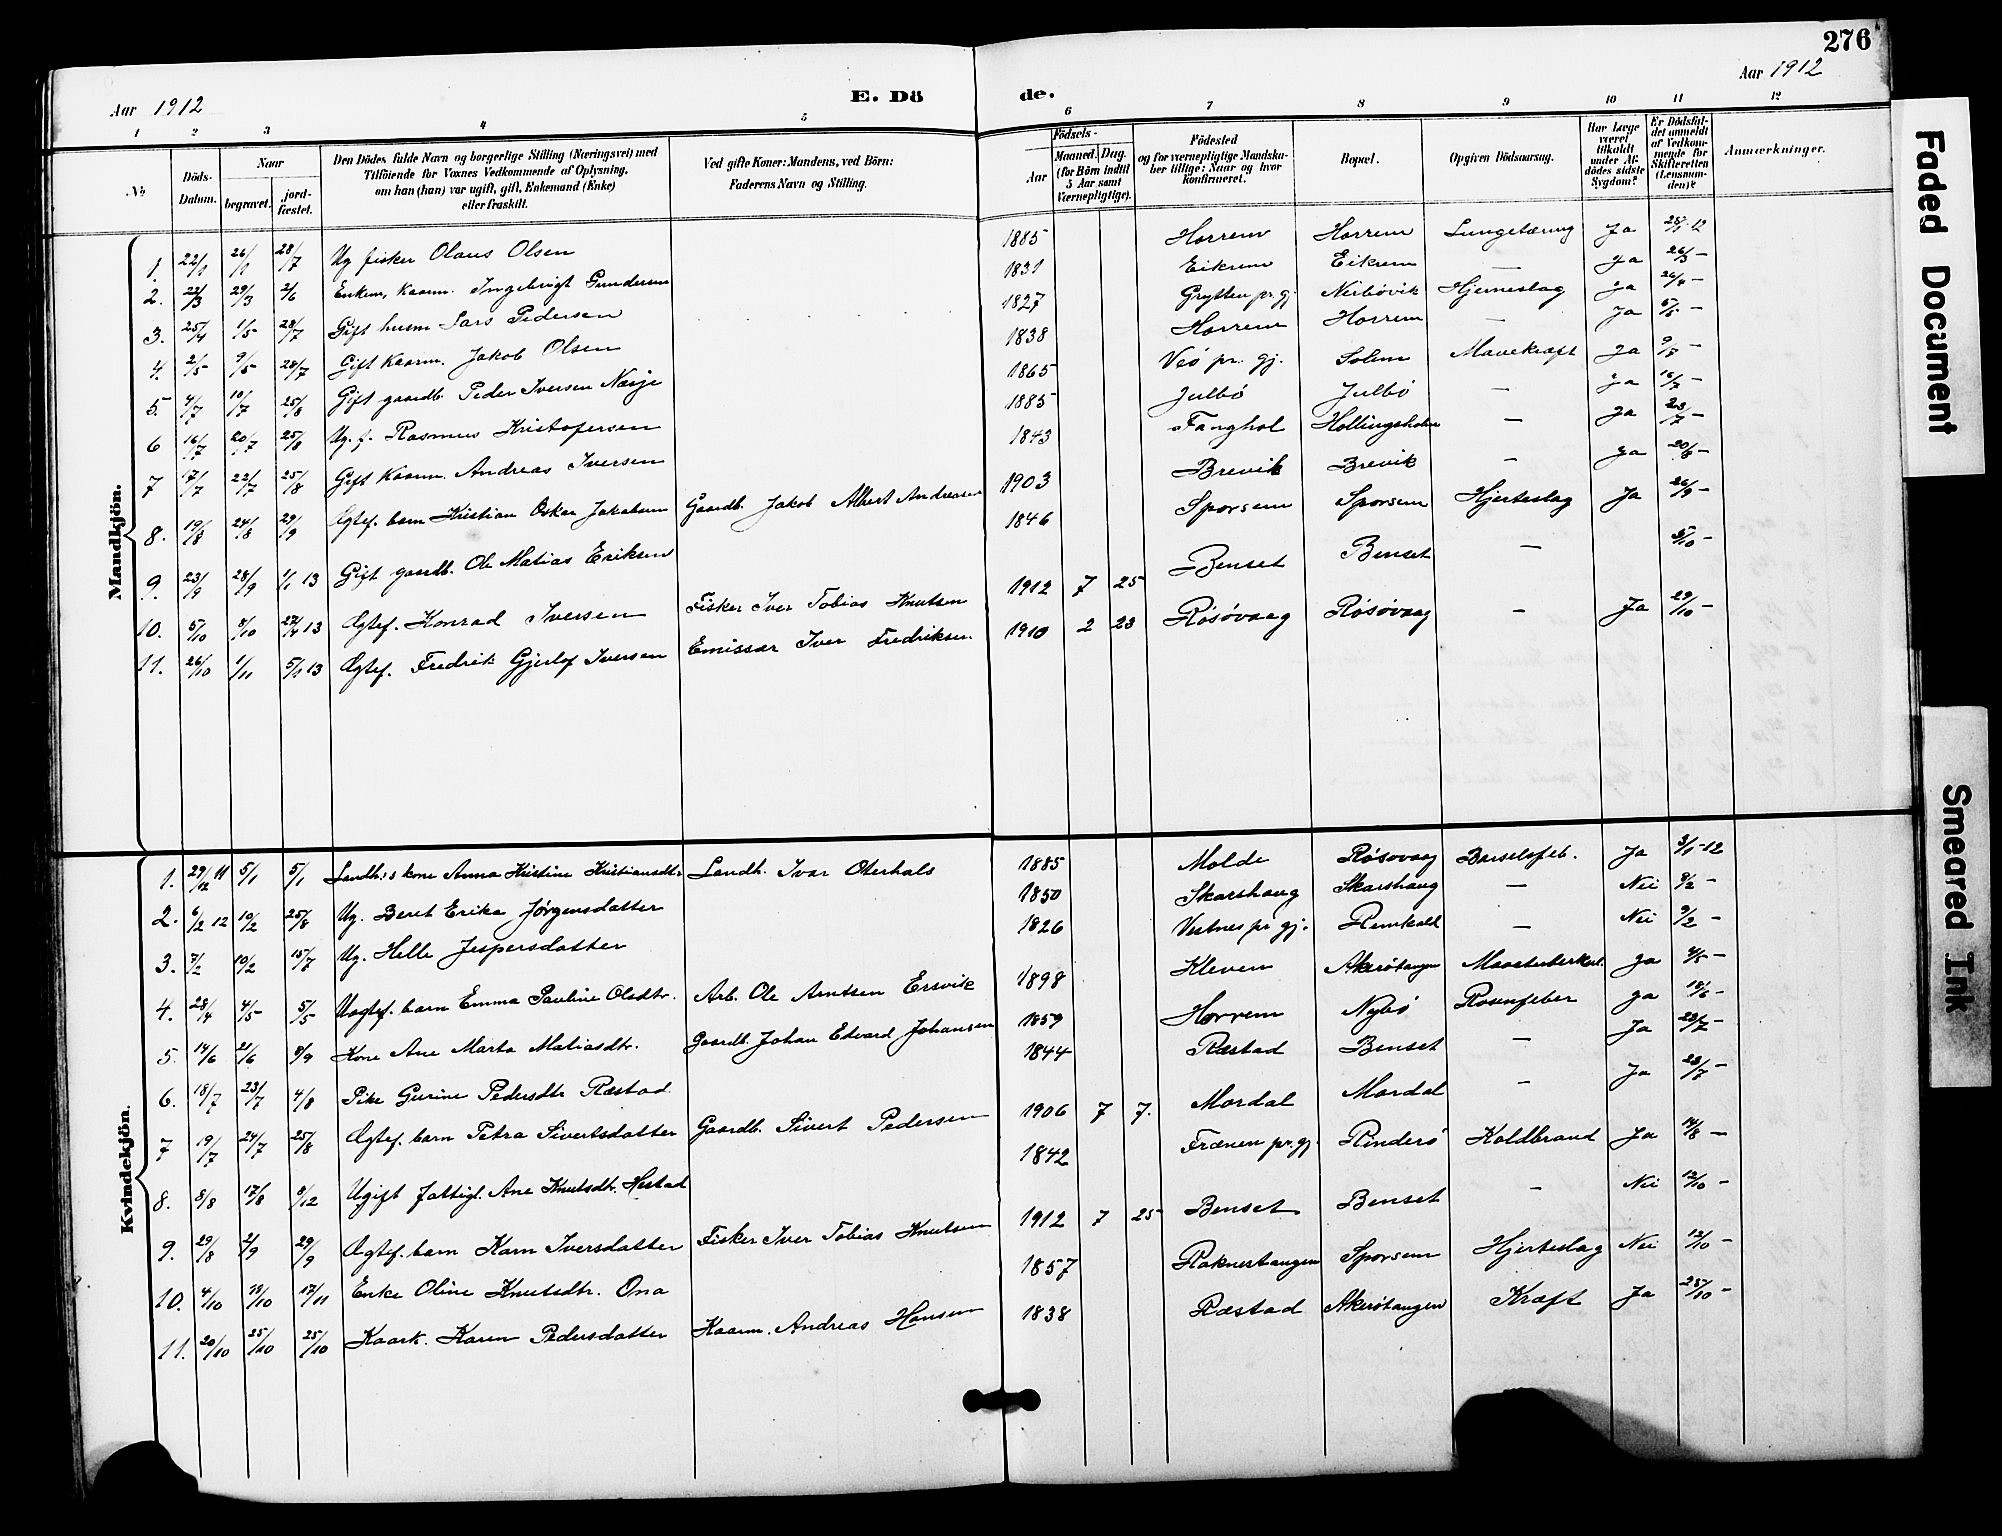 276
Aar 1912 E. Dö de. Aar 1912
1 2 3 4 5 6 7 8 9 10 11 12
No. Döds-Datum. Naar begravet. jord-fæstet. Den Dödes fulde Navn og borgerlige Stilling (Næringsvei) med Tilföiende for Voxnes Vedkommende af Oplysning, om han (hun) var ugift, gift, Enkemand (Enke) eller fraskilt. Ved gifte Koner: Mandens, ved Börn: Faderens Navn og Stilling. Födsels- Aar Maaned. Dag. (for Börn indtil 5 Aar samt Værnepligtige). Födested og for værnepligtige Mandskaber tillige: Naar og hvor konfirmeret. Bopæl. Opgiven Dödsaarsag. Har Læge været tilkaldt under Afdödes sidste Sygdom? Er Dödsfaldet anmeldt af Vedkommende for Skifteretten (Lensmanden)? Anmærkninger.
Mandkjön.
1. 22/1 26/1 28/7 Ug fisker Olaus Olsen 1885 Horrem Horrem Lungetæring Ja 25/1-12
2. 22/3 29/3 2/6 Enkem, kaarm. Ingebrigt Gundersen 1831 Eikrem Eikrem — Ja 26/3 -
3. 25/4 1/5 28/7 Gift husm Lars Pedersen 1827 Grytten pr. gj Neibövik Hjerneslag Ja 26/4 -
4. 2/5 9/5 28/7 Gift Kaarm. Jakob Olsen 1838 Horrem Horrem — Ja 5/5 -
5. 4/7 10/7 25/8 Gift gaardb. Peder Iversen Næsje 1865 Veö pr. gj. Solem Mavekræft Ja -
6 16/7 20/7 25/8 Ug. f. Rasmus Kristofersen 1885 Julbö Julbö — Ja 16/7 -
7 17/7 22/7 25/8 Gift Kaarm. Andreas Iversen 1843 Fanghol Hollingsholm — Ja 23/7 -
8. 19/8 24/8 29/9 Ægtef. barn Kristian Oskar Jakobsen Gaardb. Jakob Albert Andreasen 1903 Brevik Brevik — Ja 20/8 -
9. 23/9 28/9 1/1 13 Gift gaardb. Ole Matias Eriksen 1846 Sporsem Sporsem Hjerteslag Ja 26/9 -
10. 5/10 8/10 27/4 13 Ægtef. Konrad Iversen Fisker Iver Tobias Knutsen 1912 7 25 Benset Benset — 5/10 -
11. 26/10 1/11 5/1 13 Ægtef. Fredrik Gjerlof Iversen Emissær Iver Fredriksen 1910 2 23 Rösövaag Rösövaag — Ja 29/10 -
Kvindekjön.
1. 29/12 11 5/1 5/1 Landh.s kone Anna Kristine Kristiansdtr Landh. Ivar Oterhals 1885 Molde Rösövaag Barselsfeb. Ja 3/1-12
2. 6/2 12 10/2 25/8 Ug. Beret Erika Jörgensdatter 1850 Skarshaug Skarshaug — Nei 8/2 -
3. 7/2 10/2 15/7 Ug. Helle Jespersdatter 1826 Vestnes pr gj. — Nei 9/2 -
4. 28/4 4/5 5/5 Uægtef. barn Emma Pauline Olsdtr. Arb. Ole Arntsen Ersvik 1898 Kleven Akerötangen Ja 4/5 -
5. 14/6 21/6 8/9 Kone Ane Marta Matiasdtr. Gaardb. Johan Edvard Johansen 1859 Horrem Nybö Rosenfeber Ja 18/6 -
6. 18/7 23/7 4/8 Pike Gurine Pedersdtr Ræstad 1844 Ræstad Benset — Ja 23/7 -
7 19/7 24/7 25/8 Ægtef. barn Petra Sivertsdatter Gaardb. Sivert Pedersen 1906 7 7. Mordal Mordal — Ja 23/7 -
8. 8/8 17/8 8/12 Ugift fattigl. Ane Knutsdtr. Hestad 1842 Frænen pr. gj. Rinderö Koldbrand Ja 14/8 -
9. 29/8 2/9 29/9 Ægtef. barn Karn Iversdatter Fisker Iver Tobias Knutsen 1912 7 25 Benset Benset — Nei 12/10 -
10. 4/10 11/10 17/11 Enke Oline Knutsdtr. Ona 1857 Raknestangen Sporsem Hjerteslag Nei 12/10 -
11. 20/10 25/10 25/10 Kaark. Karen Pedersdatter Kaarm. Andreas Hansen 1838 Ræstad Akerötangen Kræft Ja 25/10 -
Faded Document
Smeared Ink